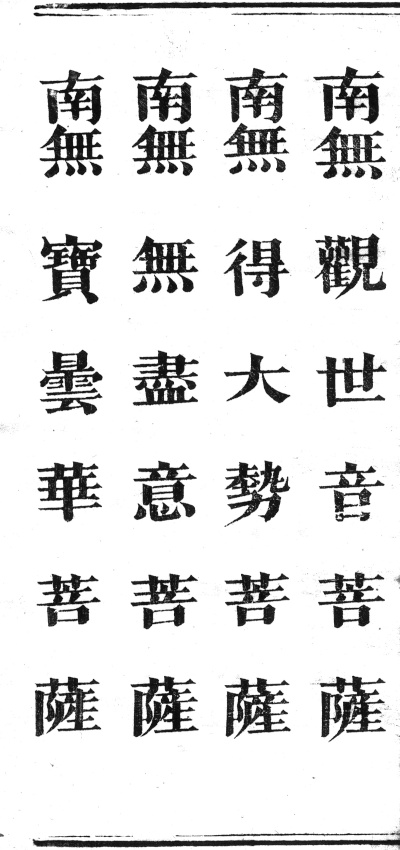 南無觀世音菩薩
南無得大勢菩薩
南無無盡意菩薩
南無寶曇華菩薩